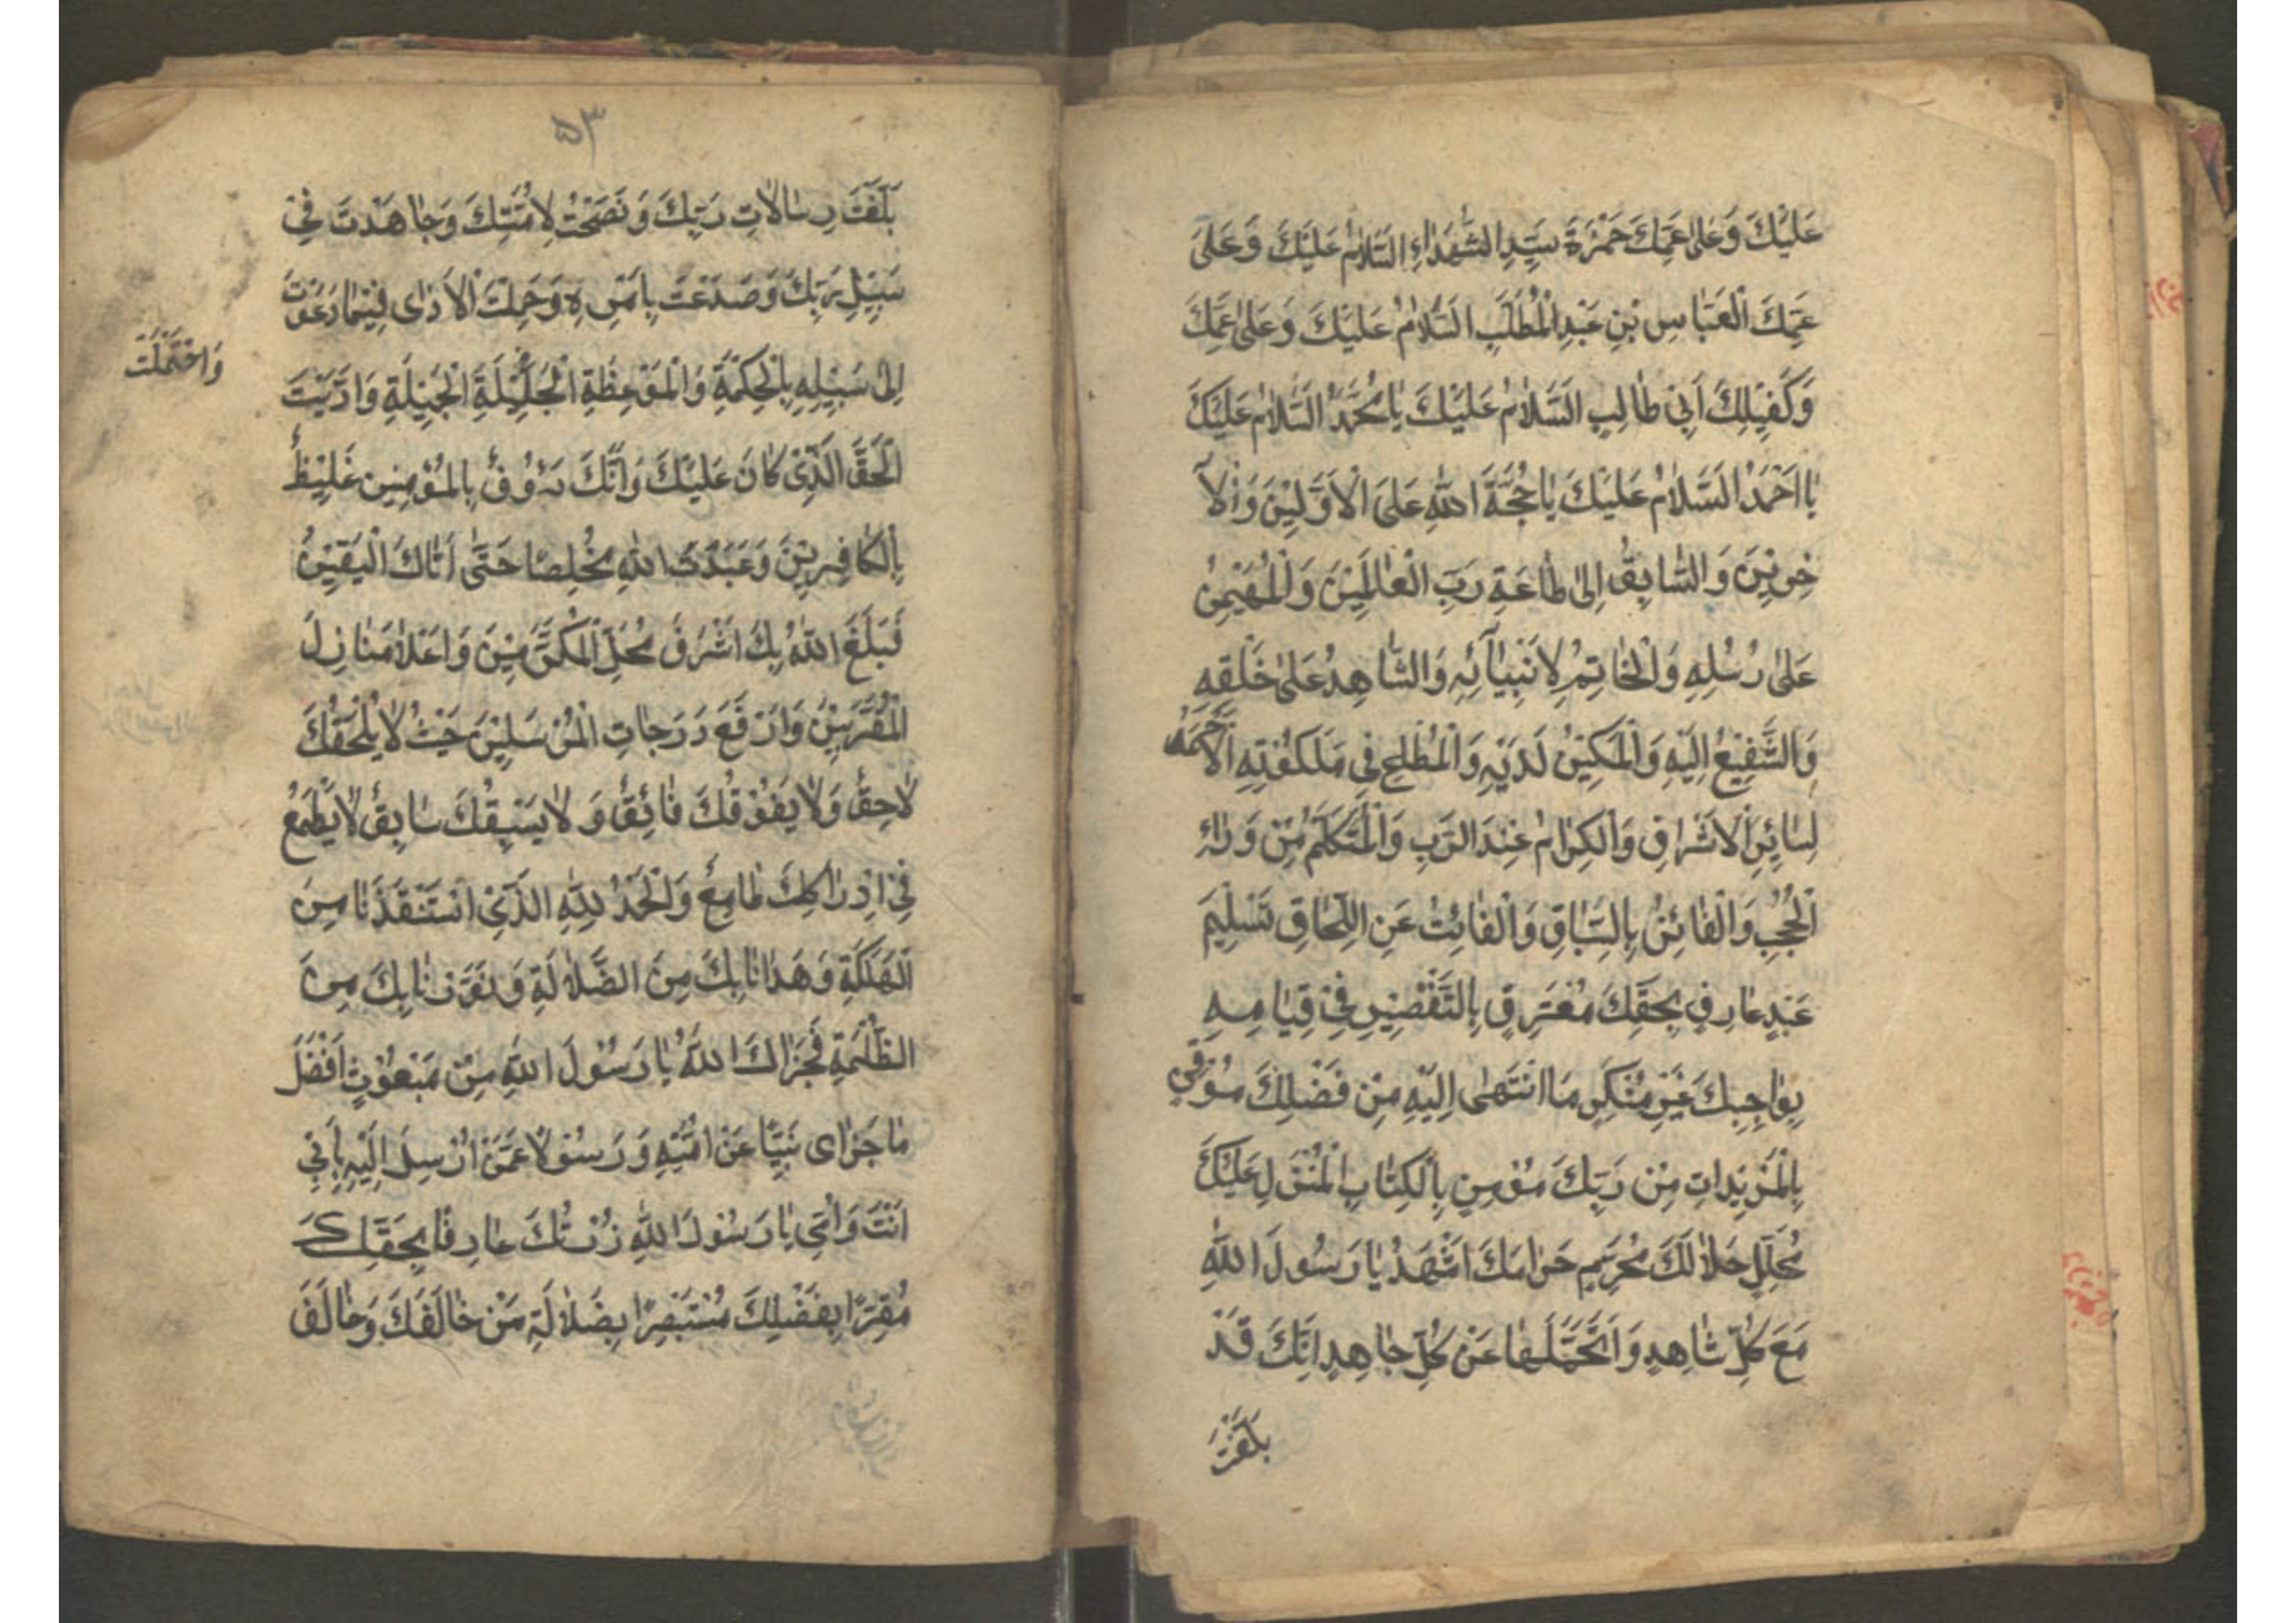 عَلَيْكَ وَعَلىٰ عَمِّكَ حَمْزَةَ سَيِّدِ الشُّهَدٰاءِ السَّلاٰمُ عَلَيْكَ وَعَلىٰ
عَمِّكَ الْعَبّٰاسِ بْنِ عَبْدِ الْمُطَّلِبِ السَّلاٰمُ عَلَيْكَ وَعَلىٰ عَمِّكَ
وَكَفِيْلِكَ اَبِيْ طٰالِبٍ السَّلاٰمُ عَلَيْكَ يٰا مُحَمَّدُ السَّلاٰمُ عَلَيْكَ
يٰا اَحْمَدُ السَّلاٰمُ عَلَيْكَ يٰا حُجَّةَ اللهِ عَلَى الْاَوَّلِيْنَ وَالْاٰ
خِرِيْنَ وَالسّٰابِقُ اِلىٰ طٰاعَةِ رَبِّ الْعٰالَمِيْنَ وَالْمُهَيْمِنُ
عَلىٰ رُسُلِهِ وَالْخٰاتِمُ لِاَنْبِيٰآئِهِ وَالشّٰاهِدُ عَلىٰ خَلْقِهِ
وَالشَّفِيْعُ اِلَيْهِ وَالْمَكِيْنُ لَدَيْهِ وَالْمُطٰاعِ فِي مَلَكُوْتِهِ الْاَحْمَدُ
لِسٰائِرِ الْاَشْرٰافِ وَالْكِرٰامُ عِنْدَ الرَّبِّ وَالْمُتَكَلِّمُ مِنْ وَرٰاءِ
الْحُجُبِ وَالْفٰائِزُ بِالسِّبٰاقِ وَالْفٰائِتُ عَنِ اللِّحٰاقِ تَسْلِيْمَ
عَبْدٍ عٰارِفٍ بِحَقِّكَ مُعْتَرِفٍ بِالتَّقْصِيْرِ فِيْ قِيٰامِهِ
بِوٰاجِبِكَ غَيْرِ مُنْكِرٍ مَا انْتَهىٰ اِلَيْهِ مِنْ فَضْلِكَ مُوْقِنٍ
بِالْمَزِيْدٰاتِ مِنْ رَبِّكَ مُؤْمِنٍ بِالْكِتٰابِ الْمُنْزَلِ عَلَيْكَ
مُحَلِّلٍ حَلاٰلَكَ مُحَرِّمٍ حَرٰامَكَ اَشْهَدُ يٰا رَسُولَ اللهِ
مَعَ كُلِّ شٰاهِدٍ وَاَتَحَمَّلُهٰا عَنْ كُلِّ جٰاحِدٍ اِنَّكَ قَدْ
بَلَّغْتَ
۵۳
بَلَّغْتَ رِسٰالاٰتِ رَبِّكَ وَنَصَحْتَ لِاُمَّتِكَ وَجٰاهَدْتَ فِيْ
سَبِيْلِ رَبِّكَ وَصَدَعْتَ بِاَمْرِهِ وَحَمِلْتَ الْاَذٰى فِيْمٰا دَعَوْتَ
وَاحْتَمَلْتَ
اِلىٰ سَبِيْلِهِ بِالْحِكْمَةِ وَالْمَوْعِظَةِ الْجَلِيْلَةِ الْجَمِيْلَةِ وَاَدَّيْتَ
الْحَقَّ الَّذِيْ كٰانَ عَلَيْكَ وَاَنَّكَ رَؤُوفٌ بِالْمُؤْمِنِيْنَ غَلِيْظٌ
بِالْكٰافِرِيْنَ وَعَبَدْتَ اللهَ مُخْلِصًا حَتّٰى اَتٰاكَ الْيَقِيْنُ
فَبَلَغَ اللهُ بِكَ اَشْرَفَ مَحَلِّ الْمُكَرَّمِيْنَ وَاَعْلاٰ مَنٰازِلَ
الْمُقَرَّبِيْنَ وَاَرْفَعَ دَرَجٰاتِ الْمُرْسَلِيْنَ حَيْثُ لاٰ يَلْحَقُكَ
لاٰحِقٌ وَلاٰ يَفُوْقُكَ فٰائِقٌ وَلاٰ يَسْبِقُكَ سٰابِقٌ لاٰ يَطْمَعُ
فِيْ اِدْرٰاكِكَ طٰامِعٌ وَالْحَمْدُ لِلّٰهِ الَّذِيْ اسْتَنْقَذَنٰا مِنَ
الْهَلَكَةِ وَهَدٰانٰا بِكَ مِنَ الضَّلاٰلَةِ وَنَوَّرَنٰا بِكَ مِنَ
الظُّلْمَةِ فَجَزٰاكَ اللهُ يٰا رَسُوْلَ اللهِ مِنْ مَبْعُوْثٍ اَفْضَلَ
مٰا جَزٰاى نَبِيًّا عَنْ اُمَّتِهِ وَرَسُوْلاً عَمَّنْ اُرْسِلَ اِلَيْهِ بِاَبِيْ
اَنْتَ وَاُمِّيْ يٰا رَسُوْلَ اللهِ زُرْتُكَ عٰارِفًا بِحَقِّكَ
مُقِرًّا بِفَضْلِكَ مُسْتَبْصِرًا بِضَلاٰلَةِ مَنْ خٰالَفَكَ وَخٰالَفَ